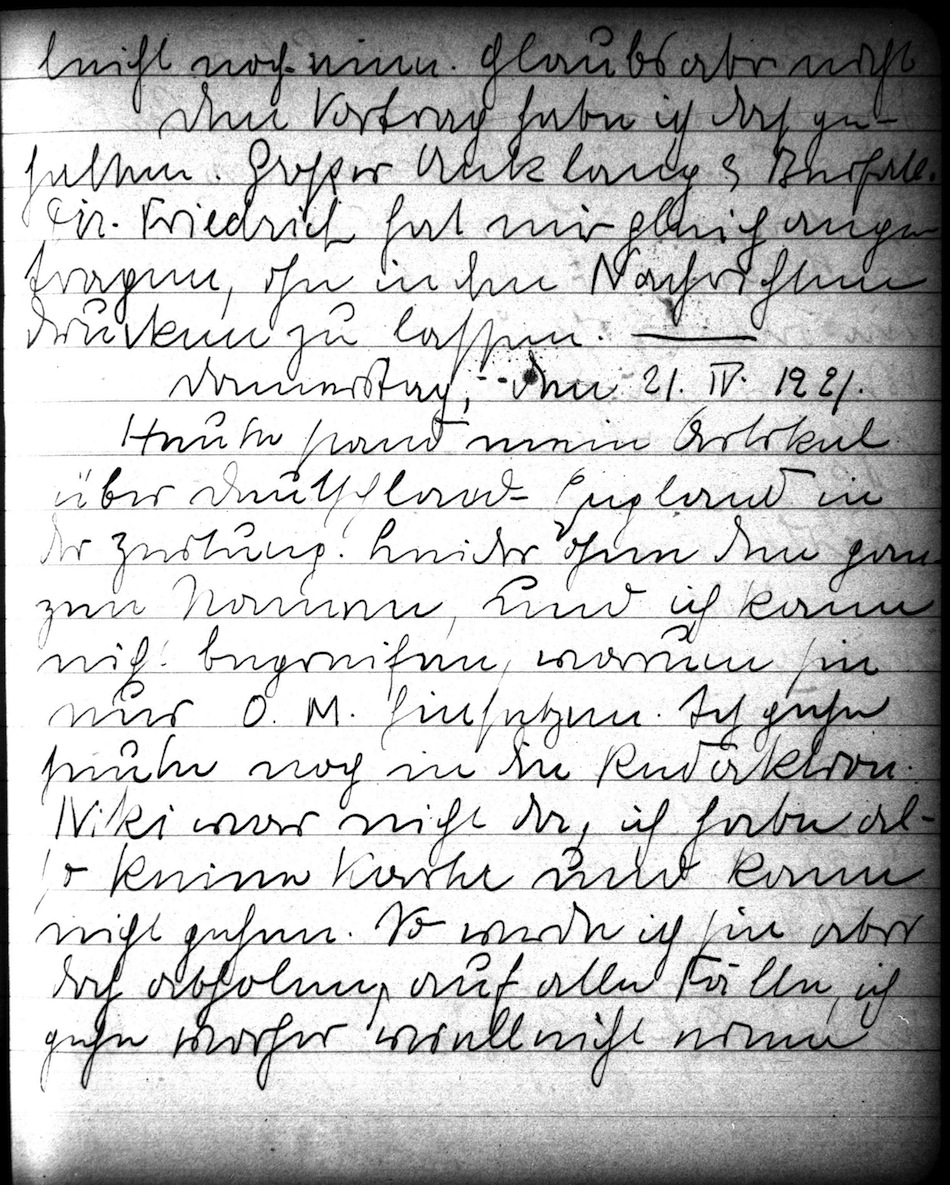 leicht noch einen. Glaubs aber nicht
Den Vortrag habe ich doch ge-
halten. Großer Anklang & Beifall.
Dir. Friedrich hat mir gleich ange-
tragen, ihn in den Nachrichten
drucken zu lassen. —
Donnerstag, den 21. IV. 1921.
Heute stand mein Artikel
über Deutschland-England in
der Zeitung. Leider ohne den gan-
zen Namen, und ich kann
nicht begreifen, warum sie
nur O. M. hinsetzen. Ich gehe
heute noch in die Redaktion.
Niki war nicht da, ich habe al-
so keine Karte und kann
nicht gehen. So werde ich sie aber
doch abholen, auf alle Fälle, ich
gehe vorher vielleicht eine